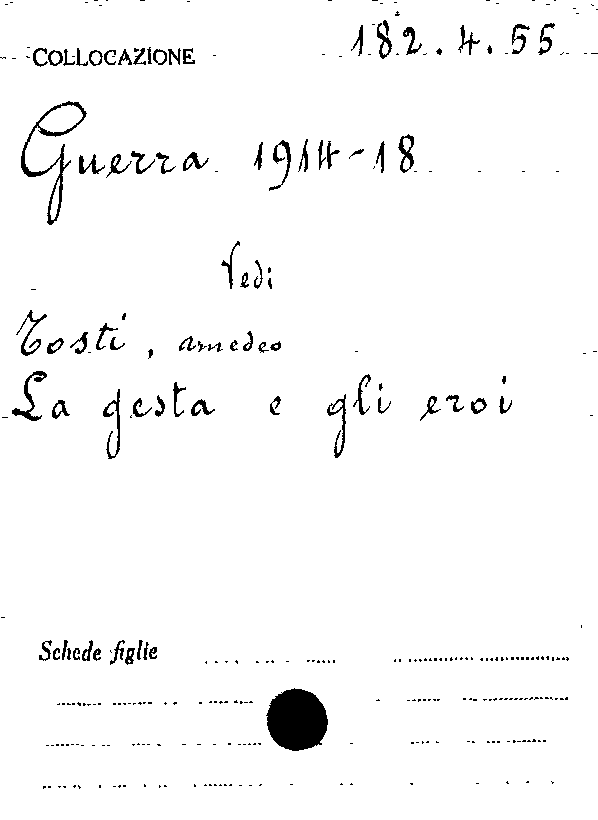 COLLOCAZIONE 182.4.55
Guerra 1914-18
Vedi
Tosti, Amedeo
La gesta e gli eroi
Schede figlie